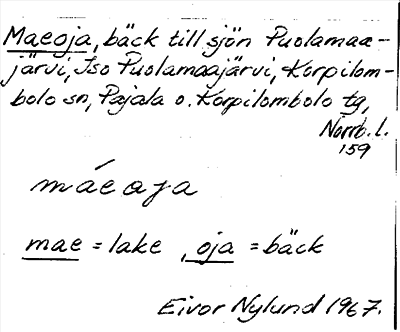 Maeoja, bäck till sjön Puolamaa-
järvi, Iso Puolamaajärvi, Korpilom-
bolo sn, Pajala o. Korpilombolo tg,
Norrb. l.
159
máeaja
mae = lake, oja = bäck
Eivor Nylund 1967.